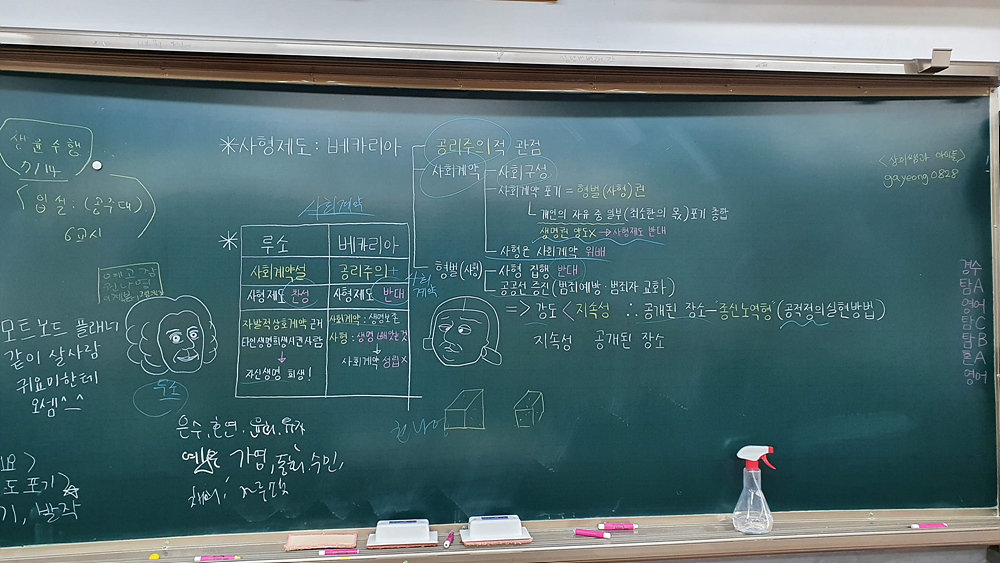 생윤수행
7/14
입실: (공주대)
6교시
모트모드 플래너
같이 살사람
귀요미한테
오셈^_^
요>
도 포기
기, 발작
루소
*사형제도: 베카리아
공리주의적 관점
사회계약
사회구성
사회계약 포기 = 형벌(사형)권
개인의 자유 중 일부(최소한의 몫)포기 총합
생명권 양도X → 사형제도 반대
사형은 사회계약 위배
형벌(사형)
사형 집행 반대
공공선 증진(범죄예방·범죄자 교화)
=> 강도 < 지속성 ∴ 공개된 장소-종신노역형 (공적정의실현방법)
지속성 공개된 장소
사회계약
* 루소 베카리아
사회계약설 공리주의+사회계약
사형제도 찬성 사형제도 반대
자발적상호계약 근거
타인생명희생시킨사람
↓
자신생명 희생!
사회계약:생명보존
사형:생명 빼앗는것
↓
사회계약성립X
은수, 혼연,
가영, 수민,
gayeong0828
경수
탐A
영어
탐C
탐B
혼A
영어